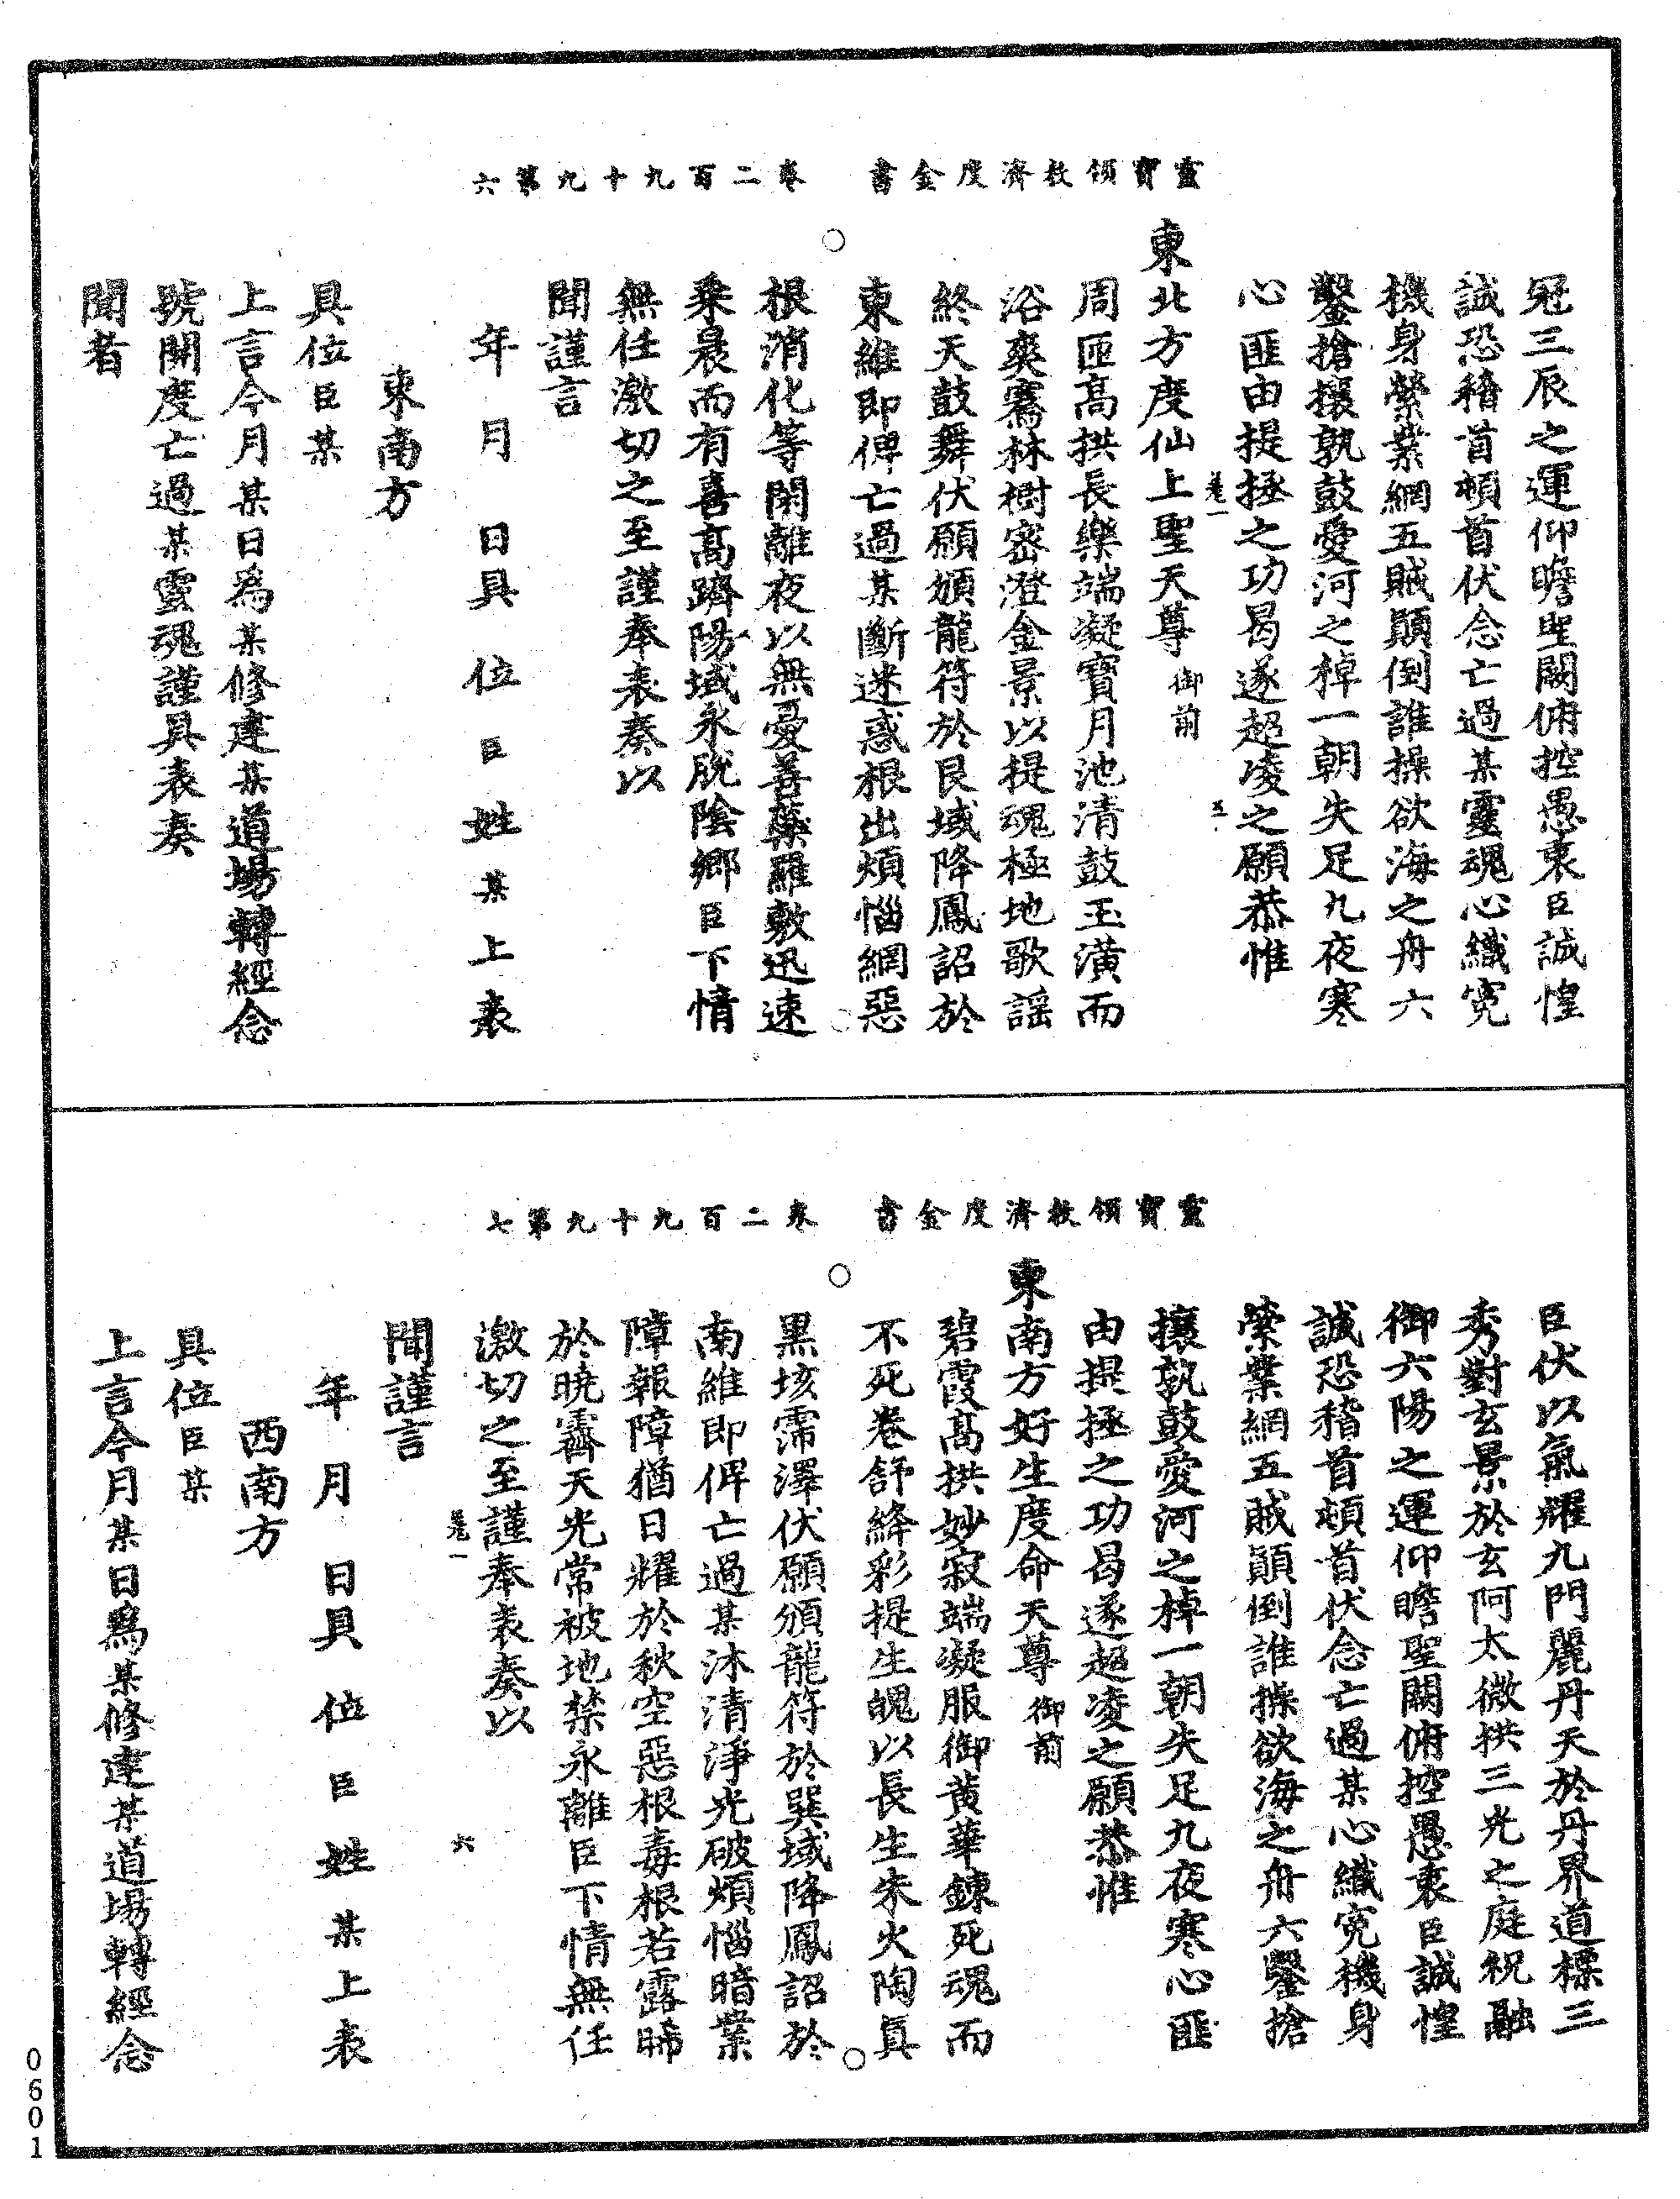 靈寶領教濟度金書　卷二百九十九第六
冠三辰之運仰瞻聖闕俯控愚衷臣誠惶
誠恐稽首頓首伏念亡過某靈魂心織寃
機身縈業網五賊顛倒誰操欲海之舟六
鑿搶攘孰鼓愛河之棹一朝失足九夜寒
心匪由提拯之功曷遂超凌之願恭惟
卷一　五
東北方度仙上聖天尊御前
周匝高拱長樂端凝寶月池清鼓玉潢而
浴爽騫林樹密澄金景以提魂極地歌謡
終天鼓舞伏願頒龍符於艮域降鳳詔於
東維即俾亡過某斷迷惑根出煩惱網惡
根消化等閑離夜以無憂善藥羅敷迅速
乘晨而有喜高躋陽域永脫陰鄉臣下情
無任激切之至謹奉表奏以
聞謹言
年　月　日具　位　臣　姓　某　上　表
東南方
具位臣某
上言今月某日爲某修建某道場轉經念
號開度亡過某靈魂謹具表奏
聞者
靈寶領教濟度金書　卷二百九十九第七
臣伏以氣耀九門麗丹天於丹界道標三
秀對玄景於玄阿太微拱三光之庭祝融
御六陽之運仰瞻聖闕俯控愚衷臣誠惶
誠恐稽首頓首伏念亡過某心織寃機身
縈業網五賊顛倒誰操欲海之舟六鑿搶
攘孰鼓愛河之棹一朝失足九夜寒心匪
由提拯之功曷遂超凌之願恭惟
東南方好生度命天尊御前
碧霞高拱妙寂端凝服御黃華鍊死魂而
不死卷舒絳彩提生魄以長生朱火陶眞
黑垓霈澤伏願頒龍符於巽域降鳳詔於
南維即俾亡過某沐清淨光破煩惱暗業
障報障猶日耀於秋空惡根毒根若露晞
於曉霽天光常被地禁永離臣下情無任
激切之至謹奉表奏以
卷一　六
聞謹言
年　月　日具　位　臣　姓　某　上　表
西南方
具位臣某
上言今月某日爲某修建某道場轉經念
0601